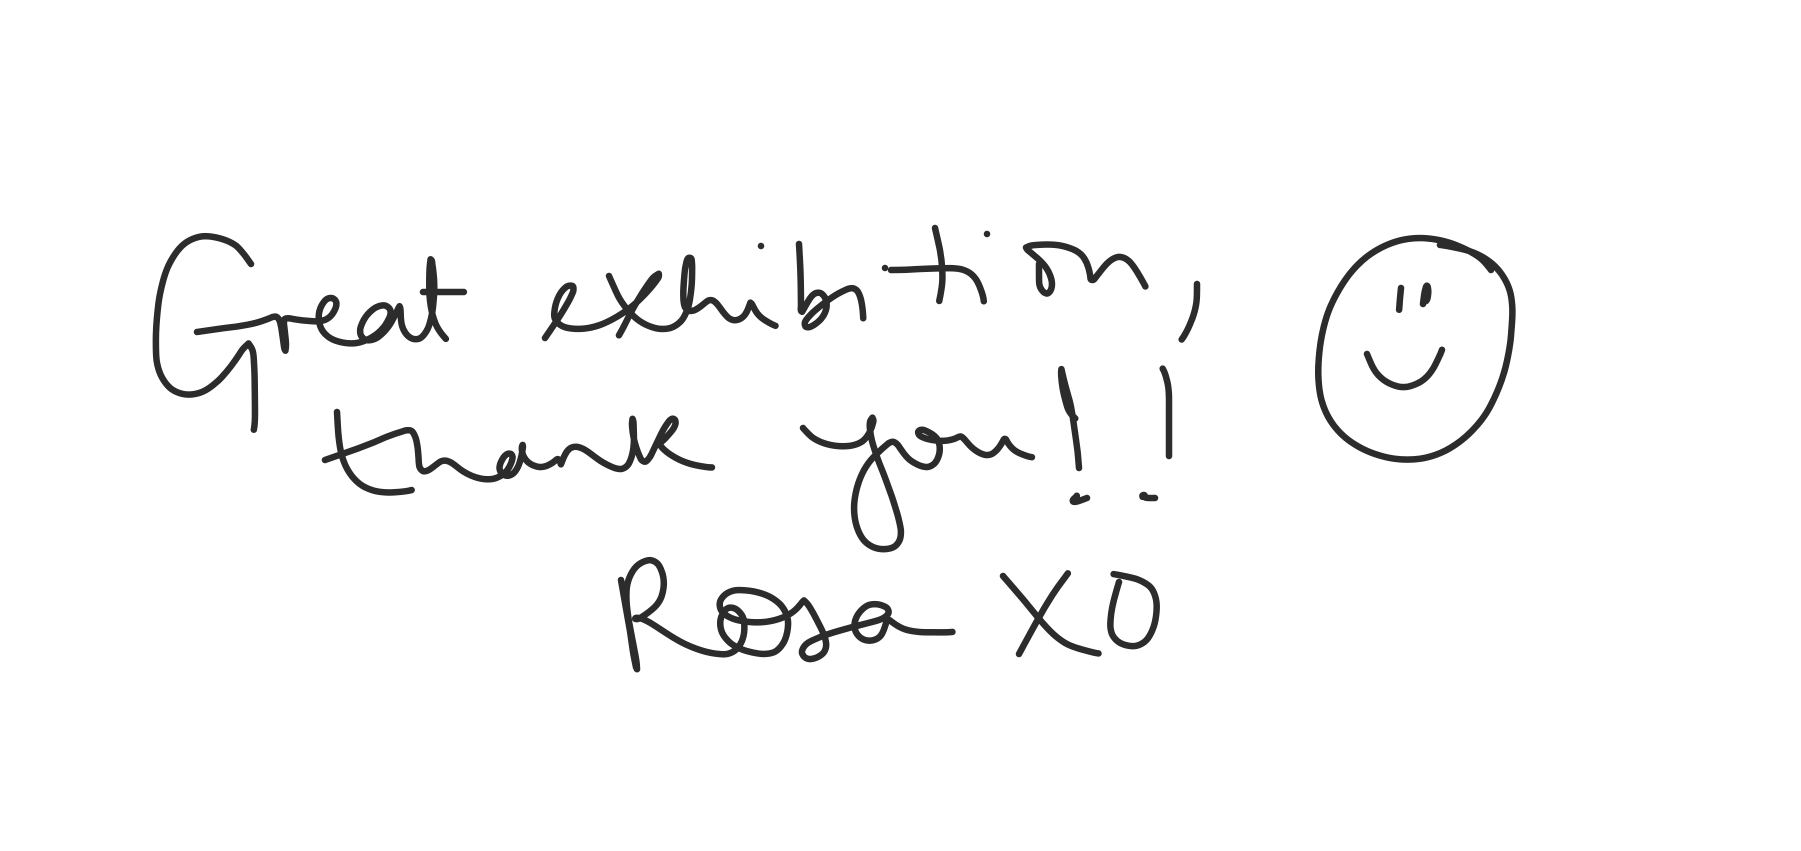 Great exhibition,
thank you!!
Rosa XO